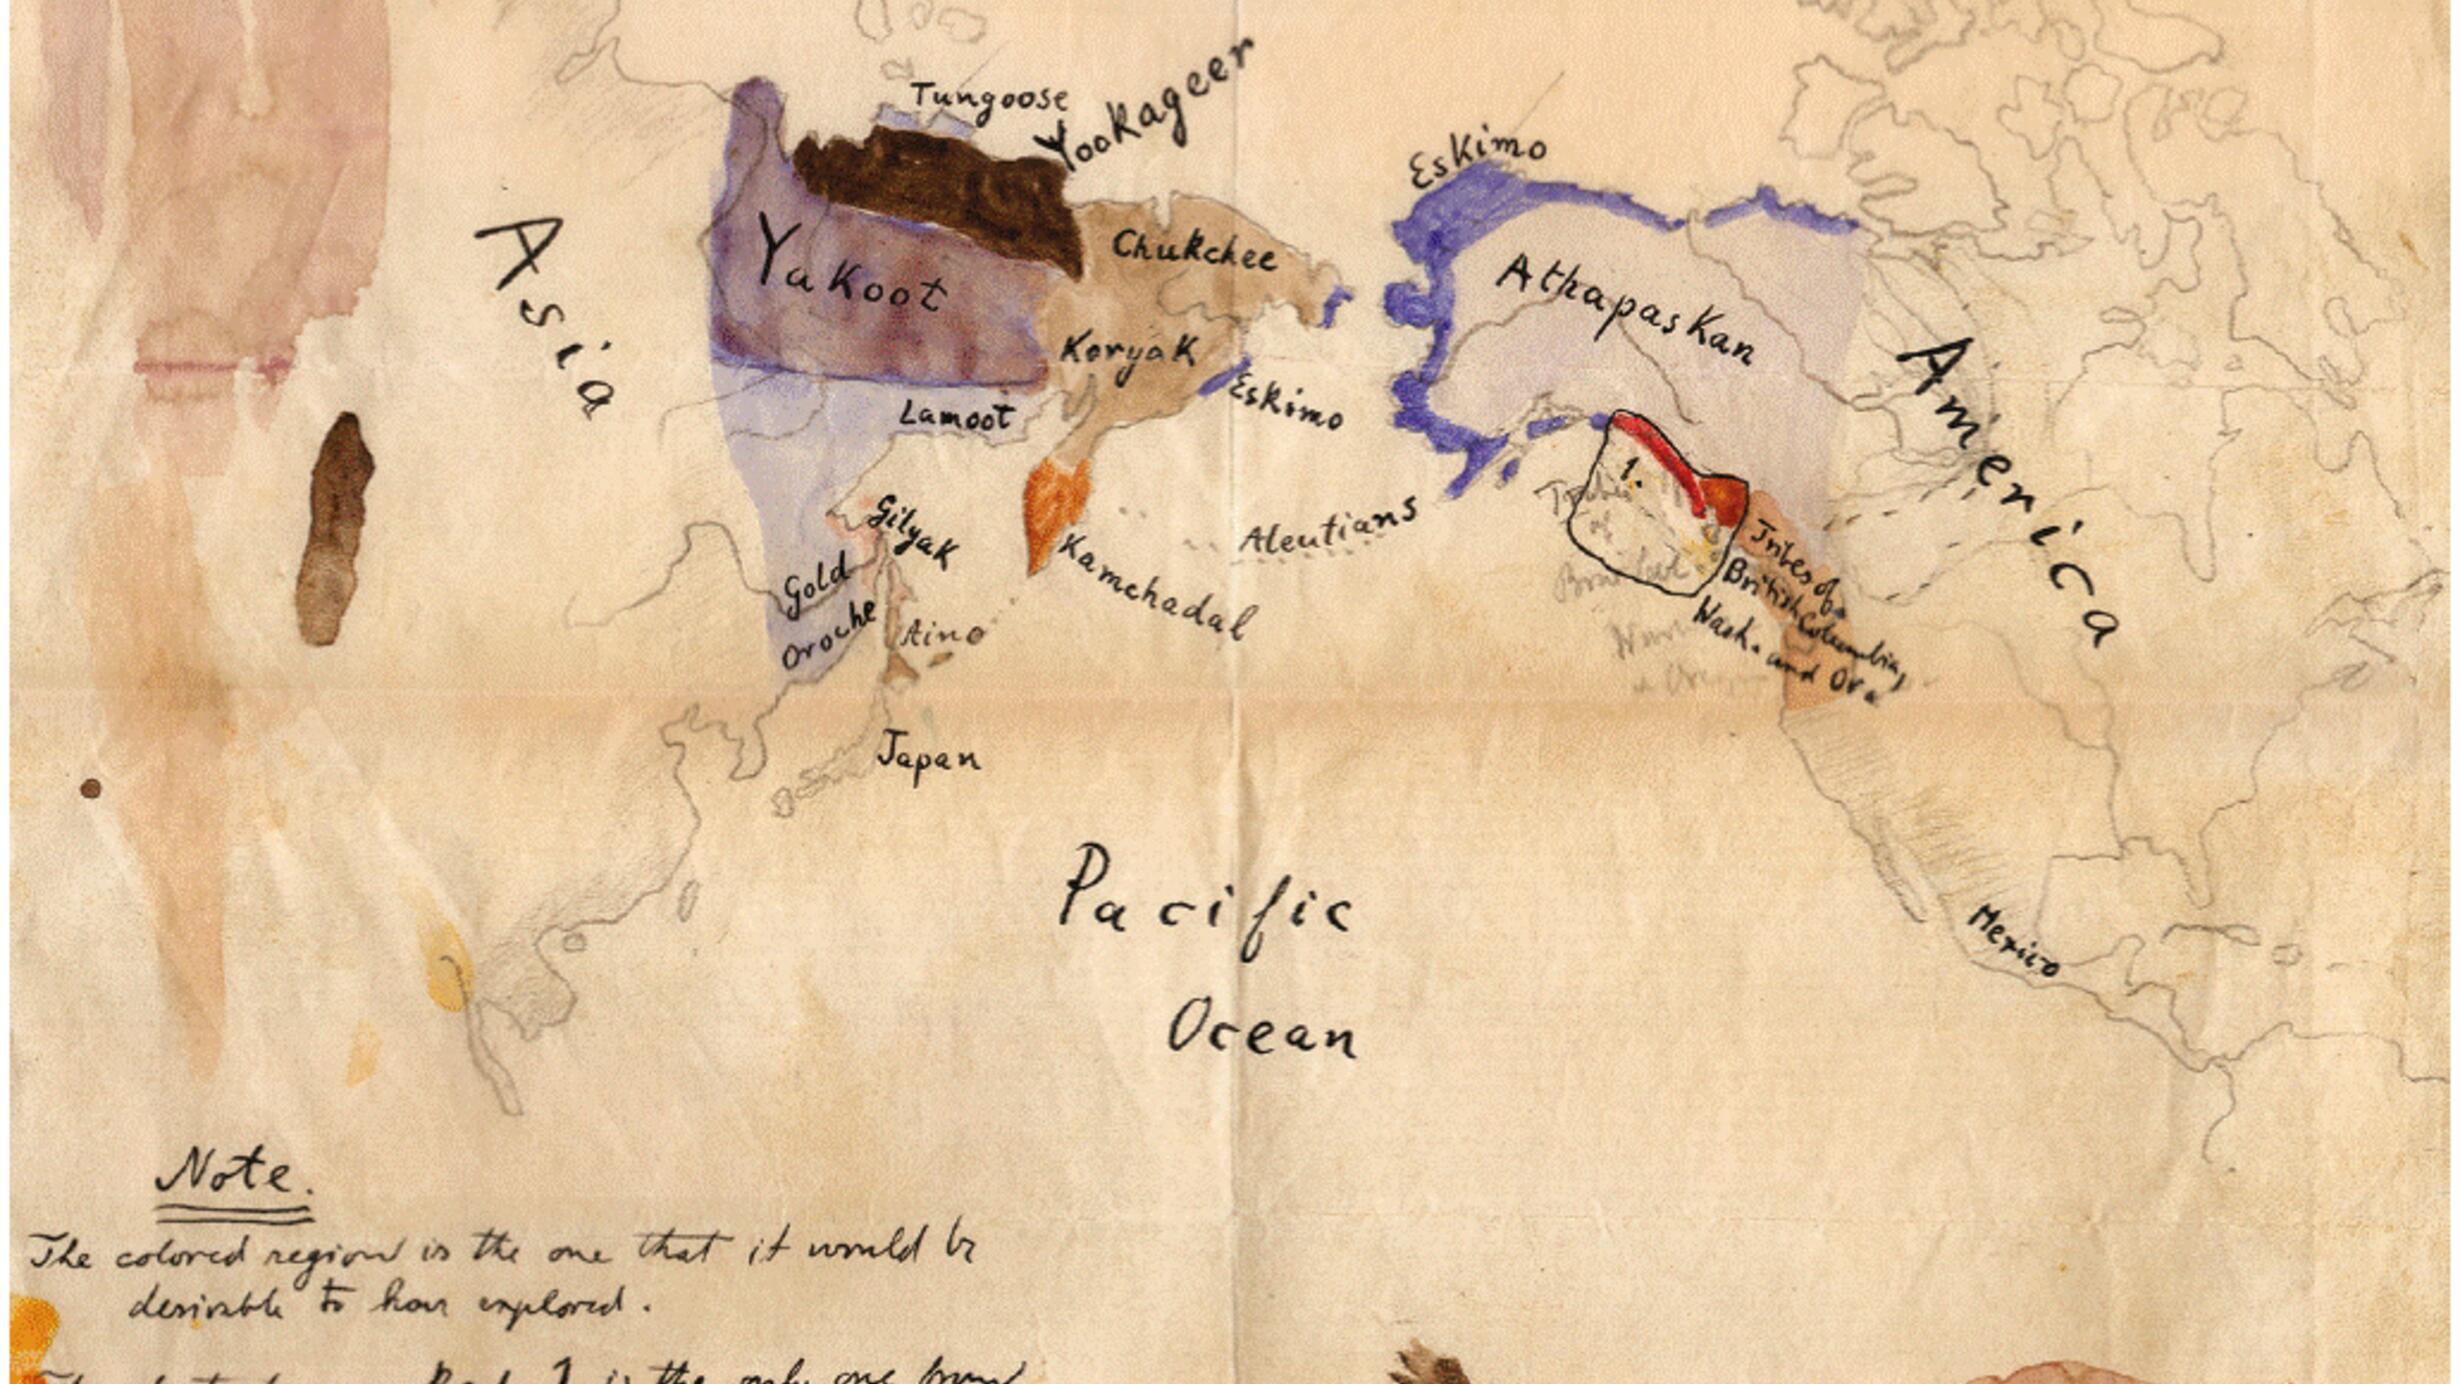 Tungoose
Yookageer
Eskimo
Asia
Yakoot
Chukchee
Athapaskan
America
Koryak
Eskimo
Lamoot
1.
Tribes
of
Gilyak
Aleutians
Kamchadal
Tribes of
British Columbia,
Wash. and Ore
Gold
Oroche
Aino
Japan
Pacific
Ocean
Mexico
Note.
The colored region is the one that it would be
desirable to have explored.
1 is the only one